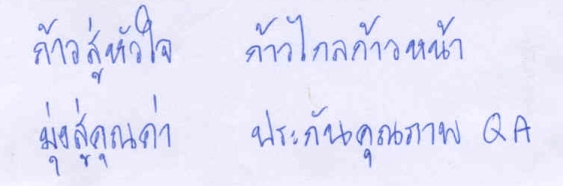 ก้าวสู่หัวใจ ก้าวไกลก้าวหน้า
มุ่งสู่คุณค่า ประกันคุณภาพ QA